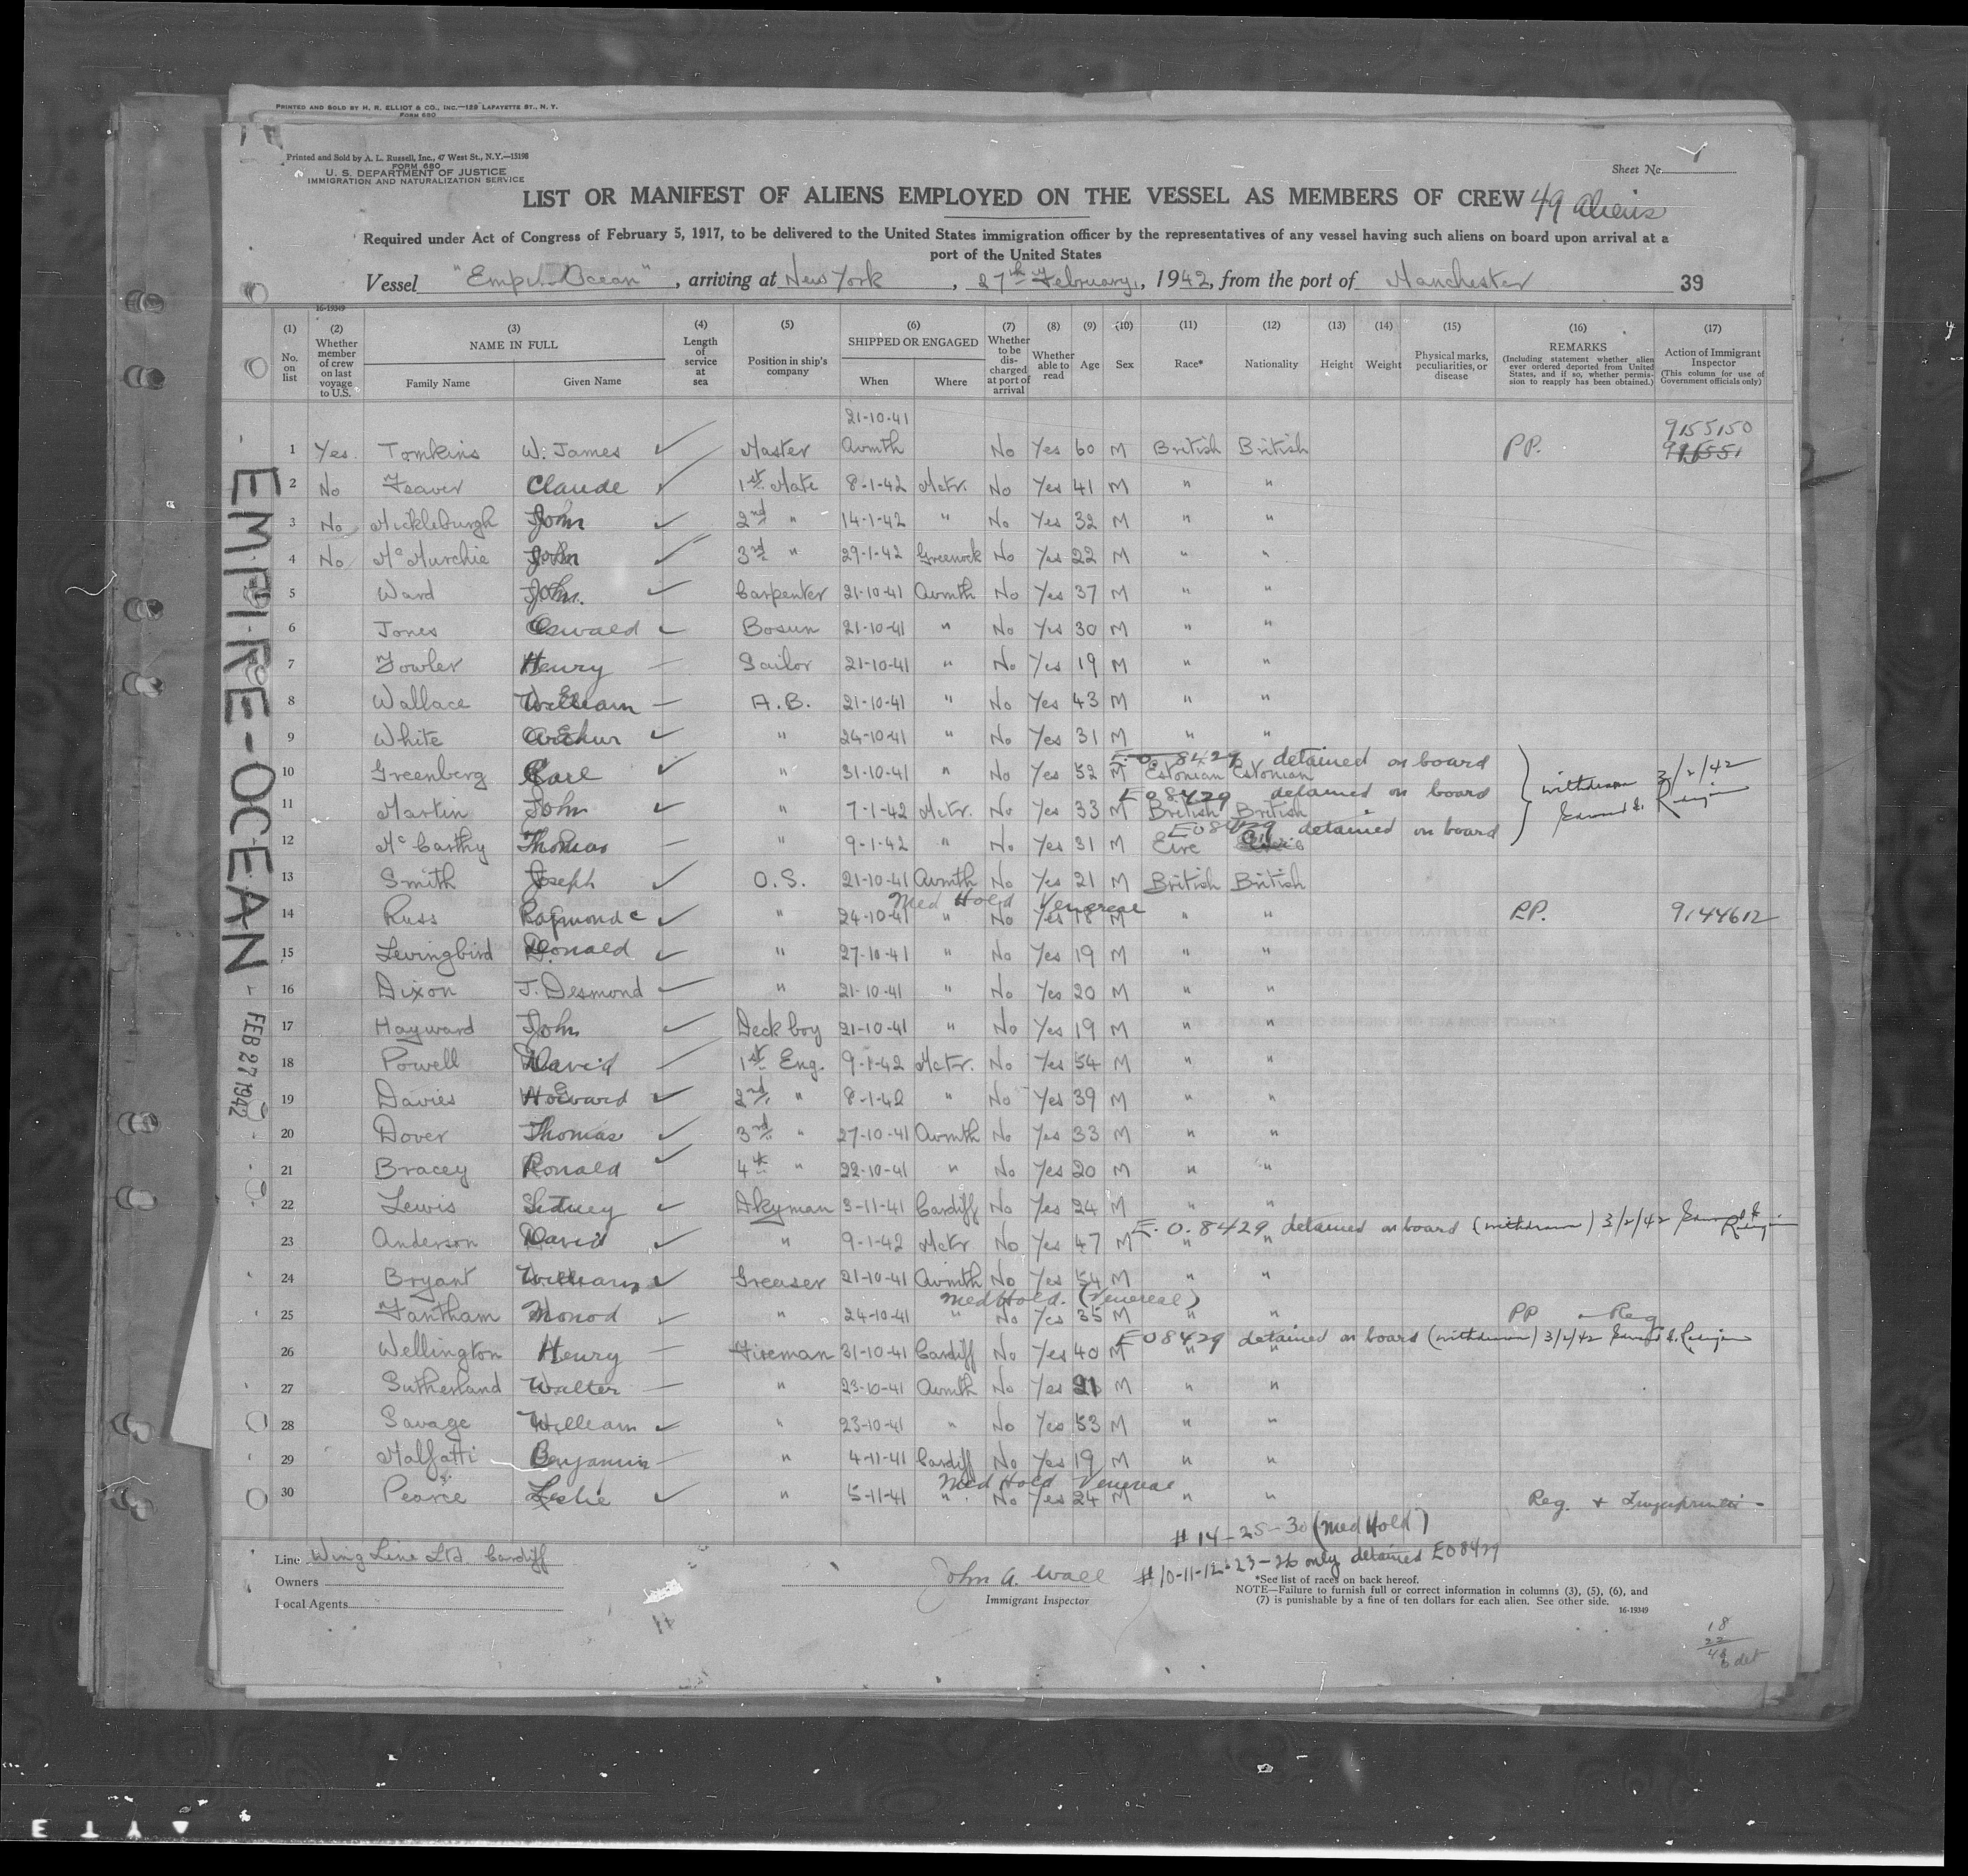 PRINTED AND SOLD BY H. R. ELLIOT & CO., INC.—129 LAFAYETTE ST., N. Y.
FORM 680
Printed and Sold by A. L. Russell, Inc., 47 West St., N.Y.—15198
FORM 680
U. S. DEPARTMENT OF JUSTICE
IMMIGRATION AND NATURALIZATION SERVICE
Sheet No. 1
LIST OR MANIFEST OF ALIENS EMPLOYED ON THE VESSEL AS MEMBERS OF CREW 49 aliens
Required under Act of Congress of February 5, 1917, to be delivered to the United States immigration officer by the representatives of any vessel having such aliens on board upon arrival at a
port of the United States
Vessel "Empire Ocean", arriving at New York, 27th February, 1942, from the port of Manchester 39
16-19349
(1) No. on list (2) Whether member of crew on last voyage to U.S. (3) NAME IN FULL Family Name Given Name (4) Length of service at sea (5) Position in ship's company (6) SHIPPED OR ENGAGED When Where (7) Whether to be discharged at port of arrival (8) Whether able to read (9) Age (10) Sex (11) Race* (12) Nationality (13) Height (14) Weight (15) Physical marks, peculiarities, or disease (16) REMARKS (Including statement whether alien ever ordered deported from United States, and if so, whether permission to reapply has been obtained.) (17) Action of Immigrant Inspector (This column for use of Government officials only)
21-10-41 9155150
1 Yes. Tomkins W. James ✓ Master Avmth No Yes 60 M British British PP.
2 No Feaver Claude ✓ 1st Mate 8-1-42 Mctr. No Yes 41 M " "
3 No Mickleburgh John ✓ 2nd " 14-1-42 " No Yes 32 M " "
4 No McMurchie John ✓ 3rd " 29-1-42 Greenock No Yes 22 M " "
5 Ward John. ✓ Carpenter 21-10-41 Avmth No Yes 37 M " "
6 Jones Oswald ✓ Bosun 21-10-41 " No Yes 30 M " "
7 Fowler Henry — Sailor 21-10-41 " No Yes 19 M " "
8 Wallace William — A.B. 21-10-41 " No Yes 43 M " "
9 White Arthur ✓ " 24-10-41 " No Yes 31 M " "
E.O. 8429 detained on board
10 Greenberg Karl ✓ " 31-10-41 " No Yes 52 M Estonian Estonian
withdrawn 3/2/42
EO 8429 detained on board
11 Martin John ✓ " 7-1-42 Mctr. No Yes 33 M British British
EO 8429 detained on board
12 McCarthy Thomas — " 9-1-42 " No Yes 31 M Eire
13 Smith Joseph ✓ O.S. 21-10-41 Avmth No Yes 21 M British British
Med Hold Venereal
14 Russ Raymond C ✓ " 24-10-41 " No Yes 18 M " " P.P. 9144612
15 Levingbird Donald ✓ " 27-10-41 " No Yes 19 M " "
16 Dixon J. Desmond ✓ " 21-10-41 " No Yes 20 M " "
17 Hayward John ✓ Deck boy 21-10-41 " No Yes 19 M " "
18 Powell David ✓ 1st Eng. 9-1-42 Mctr. No Yes 54 M " "
19 Davies Howard ✓ 2nd " 8-1-42 " No Yes 39 M " "
20 Dover Thomas ✓ 3rd " 27-10-41 Avmth No Yes 33 M " "
21 Bracey Ronald ✓ 4th " 22-10-41 " No Yes 20 M " "
22 Lewis Sidney ✓ Dkyman 3-11-41 Cardiff No Yes 24 M " "
E.O. 8429 detained on board (withdrawn) 3/2/42
23 Anderson David ✓ " 9-1-42 Mctr No Yes 47 M " "
24 Bryant William ✓ Greaser 21-10-41 Avmth No Yes 54 M " "
Med Hold. (Venereal)
25 Fantham Monod ✓ " 24-10-41 " No Yes 35 M " " PP — Reg
EO 8429 detained on board (withdrawn) 3/2/42
26 Wellington Henry — Fireman 31-10-41 Cardiff No Yes 40 M " "
27 Sutherland Walter — " 23-10-41 Avmth No Yes 21 M " "
28 Savage William ✓ " 23-10-41 " No Yes 53 M " "
29 Malfatti Benjamin — " 4-11-41 Cardiff No Yes 19 M " "
Med Hold Venereal
30 Pearce Leslie ✓ " 5-11-41 " No Yes 24 M " " Reg. + Fingerprinted -
# 14-25-30 (Med Hold)
# 10-11-12-23-26 only detained EO 8429
Line Wing Line Ltd. Cardiff
Owners
Local Agents
John A. Wall
Immigrant Inspector
*See list of races on back hereof.
NOTE—Failure to furnish full or correct information in columns (3), (5), (6), and
(7) is punishable by a fine of ten dollars for each alien. See other side.
16-19349
18
22
6 det
EMPIRE-OCEAN - FEB 27 1942